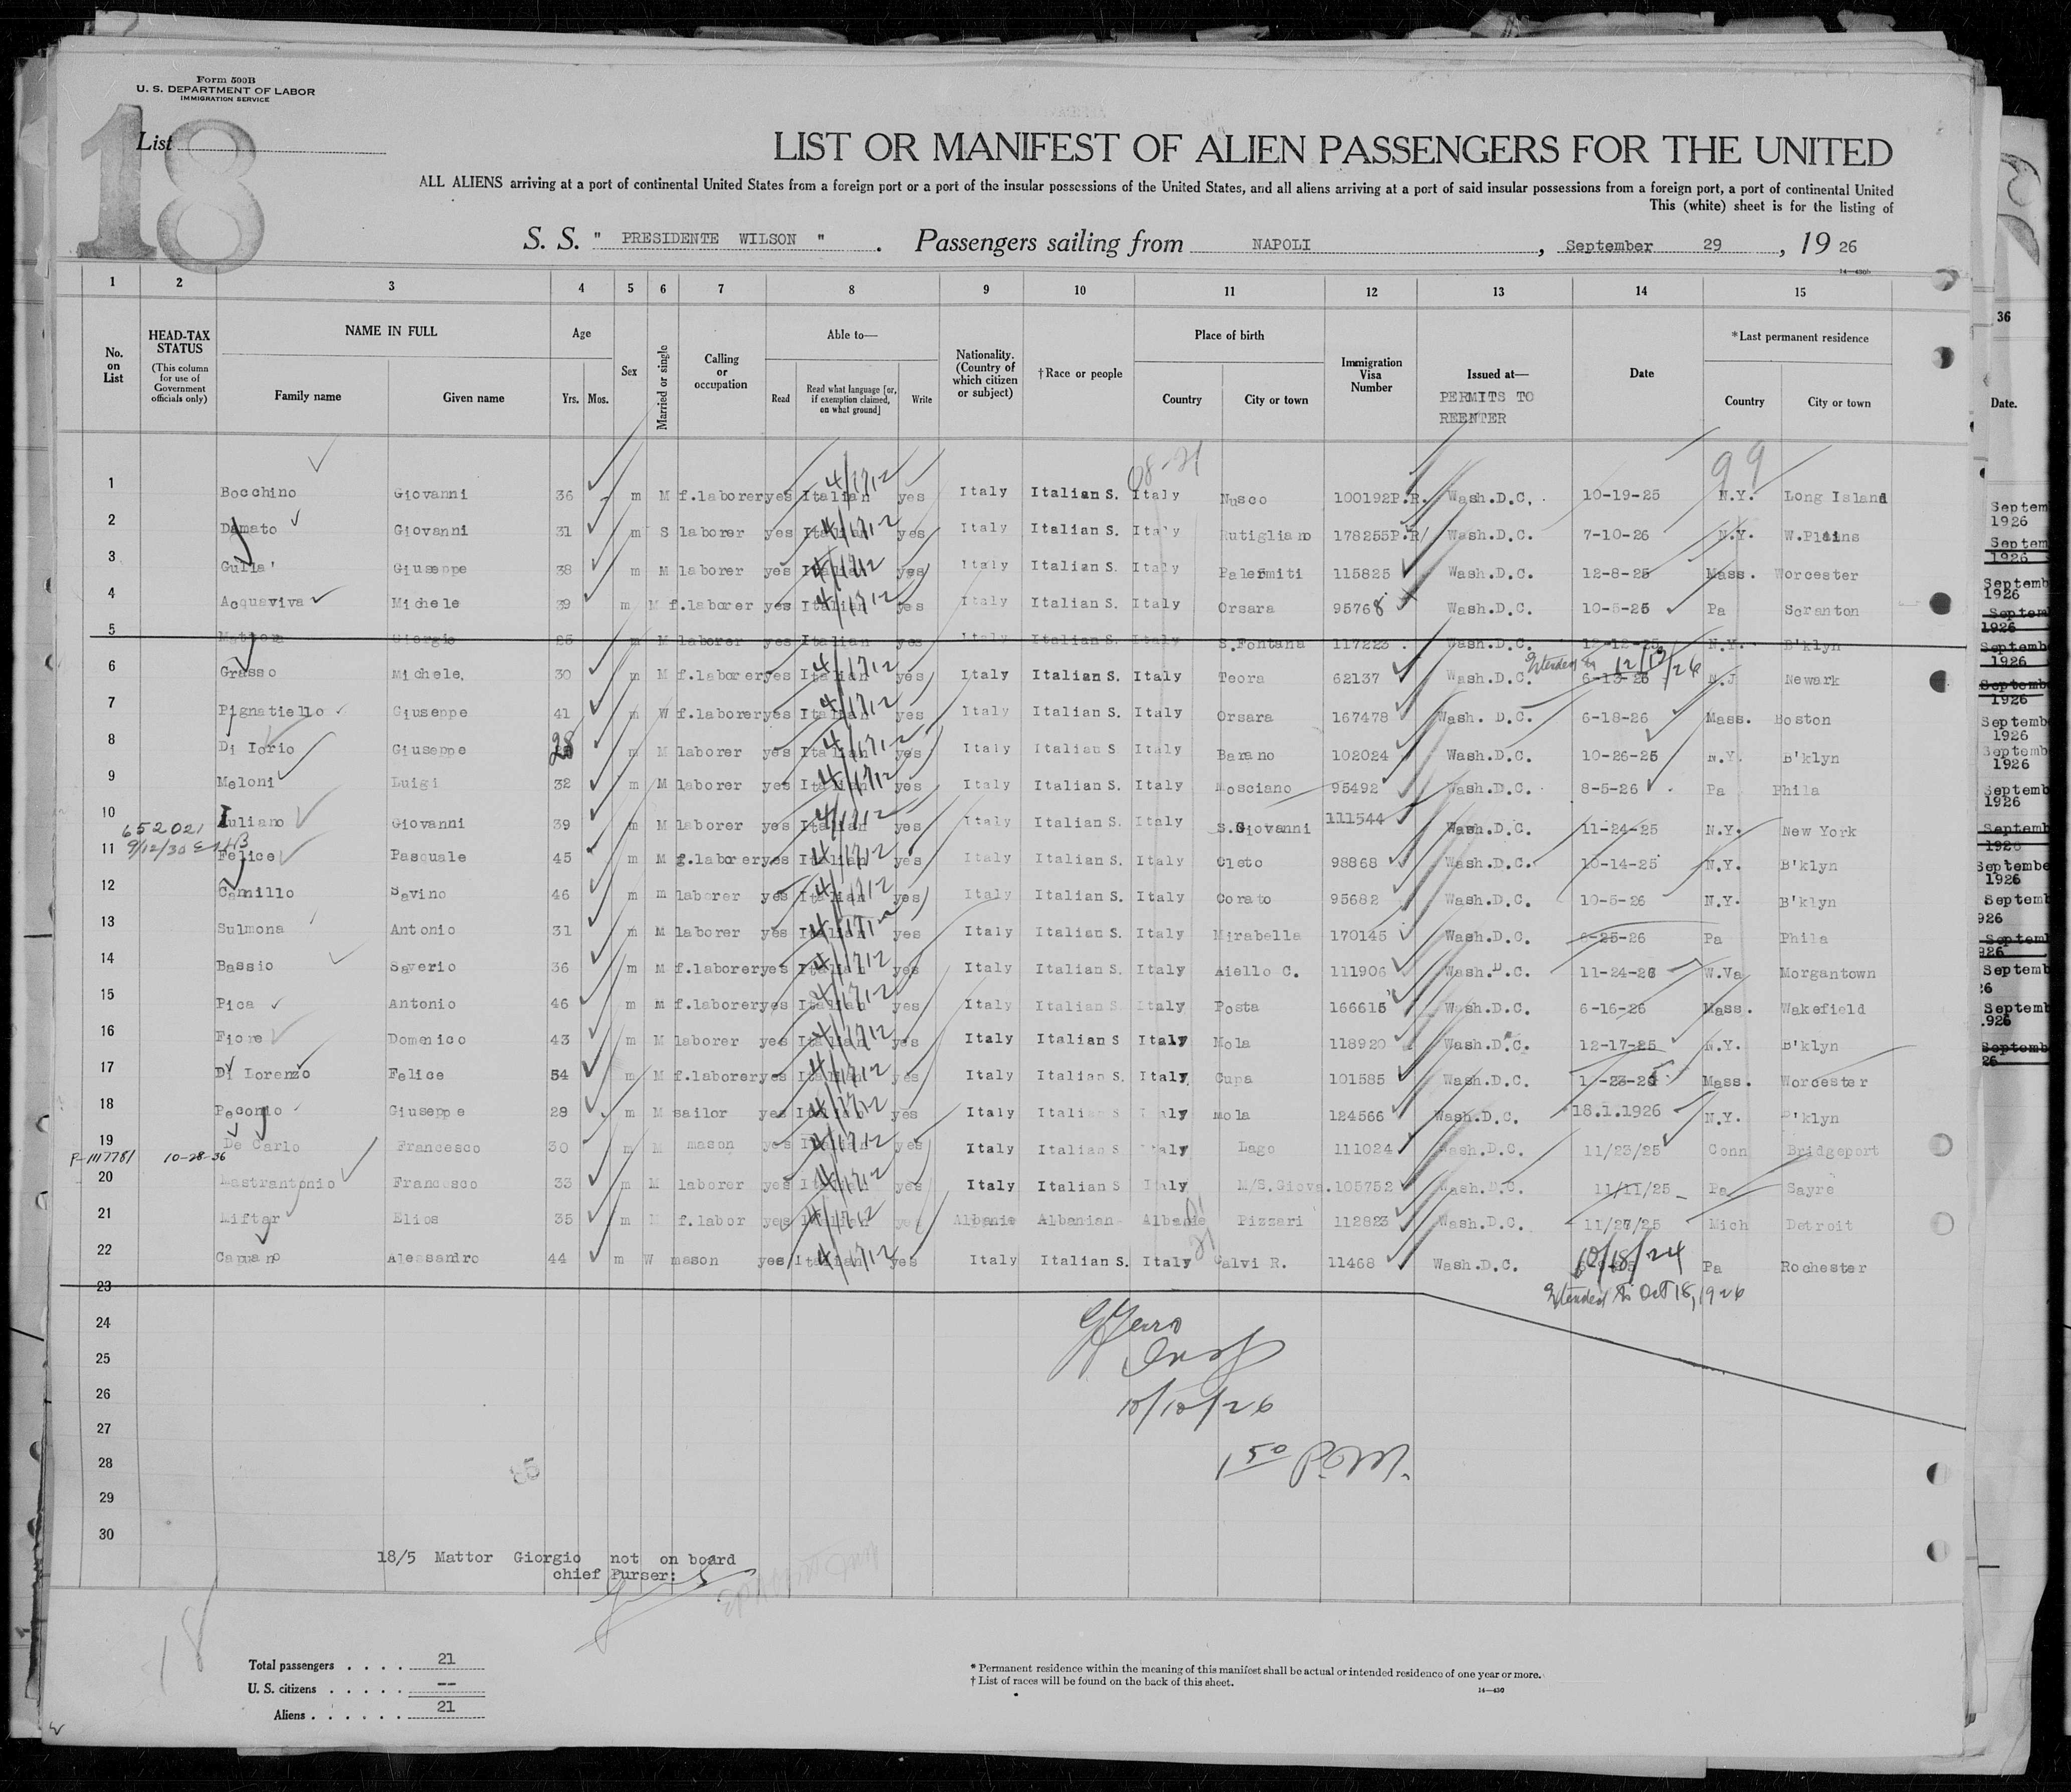 Form 500B
U. S. DEPARTMENT OF LABOR
IMMIGRATION SERVICE
18
List
LIST OR MANIFEST OF ALIEN PASSENGERS FOR THE UNITED
ALL ALIENS arriving at a port of continental United States from a foreign port or a port of the insular possessions of the United States, and all aliens arriving at a port of said insular possessions from a foreign port, a port of continental United
This (white) sheet is for the listing of
S. S. " PRESIDENTE WILSON " . Passengers sailing from NAPOLI , September 29 , 19 26
14—430b
1 2 3 4 5 6 7 8 9 10 11 12 13 14 15
No. on List HEAD-TAX STATUS (This column for use of Government officials only) NAME IN FULL Family name Given name Age Yrs. Mos. Sex Married or single Calling or occupation Able to— Read Read what language [or, if exemption claimed, on what ground] Write Nationality. (Country of which citizen or subject) †Race or people Place of birth Country City or town Immigration Visa Number Issued at— PERMITS TO REENTER Date *Last permanent residence Country City or town
36
Date.
99
1 Bocchino Giovanni 36 m M f.laborer yes Italian 4/1712 yes Italy Italian S. Italy Nusco 100192P.R. Wash.D.C. 10-19-25 N.Y. Long Island
2 Damato Giovanni 31 m S laborer yes Italian 4/1712 yes Italy Italian S. Italy Rutigliano 178255P.R/ Wash.D.C. 7-10-26 N.Y. W.Plains
3 Gulla' Giuseppe 38 m M laborer yes Italian 4/1712 yes Italy Italian S. Italy Palermiti 115825 Wash.D.C. 12-8-25 Mass. Worcester
4 Acquaviva Michele 39 m M f.laborer yes Italian 4/1712 yes Italy Italian S. Italy Orsara 95768 Wash.D.C. 10-5-25 Pa Scranton
5 Giorgio m M laborer yes Italian yes Italy Italian S. Italy S.Fontana 117223 Wash.D.C. 12-12-25 N.Y. B'klyn
Extended to 12/13/26
6 Grasso Michele, 30 m M f.laborer yes Italian 4/1712 yes Italy Italian S. Italy Teora 62137 Wash.D.C. 6-13-26 N.J Newark
7 Pignatiello Giuseppe 41 m W f.laborer yes Italian 4/1712 yes Italy Italian S. Italy Orsara 167478 Wash. D.C. 6-18-26 Mass. Boston
8 Di Iorio Giuseppe 28 m M laborer yes Italian 4/1712 yes Italy Italian S Italy Barano 102024 Wash.D.C. 10-26-25 N.Y. B'klyn
9 Meloni Luigi 32 m M laborer yes Italian 4/1712 yes Italy Italian S. Italy Mosciano 95492 Wash.D.C. 8-5-26 Pa Phila
10 Iuliano Giovanni 39 m M laborer yes Italian 4/1712 yes Italy Italian S. Italy S.Giovanni 111544 Wash.D.C. 11-24-25 N.Y. New York
652021
9/12/30
11 Felice Pasquale 45 m M f.laborer yes Italian 4/1712 yes Italy Italian S. Italy Cleto 98868 Wash.D.C. 10-14-25 N.Y. B'klyn
12 Camillo Savino 46 m m laborer yes Italian 4/1712 yes Italy Italian S. Italy Corato 95682 Wash.D.C. 10-5-26 N.Y. B'klyn
13 Sulmona Antonio 31 m M laborer yes Italian yes Italy Italian S. Italy Mirabella 170145 Wash.D.C. 6-25-26 Pa Phila
14 Bassio Saverio 36 m M f.laborer yes Italian 4/1712 yes Italy Italian S. Italy Aiello C. 111906 Wash.D.C. 11-24-26 W.Va Morgantown
15 Pica Antonio 46 m M f.laborer yes Italian 4/1712 yes Italy Italian S Italy Posta 166615 Wash.D.C. 6-16-26 Mass. Wakefield
16 Fiore Domenico 43 m M laborer yes Italian 4/1712 yes Italy Italian S Italy Mola 118920 Wash.D.C. 12-17-25 N.Y. B'klyn
17 Di Lorenzo Felice 54 m M f.laborer yes Italian 4/1712 yes Italy Italian S. Italy Cupa 101585 Wash.D.C. Mass. Worcester
18 Peconio Giuseppe 29 m M sailor yes Italian 4/1712 yes Italy Italian S Italy Mola 124566 Wash.D.C. 18.1.1926 N.Y. B'klyn
19 De Carlo Francesco 30 m M mason yes Italian 4/1712 yes Italy Italian S Italy Lago 111024 Wash.D.C. 11/23/25 Conn Bridgeport
P-1117781 10-28-36
20 Mastrantonio Francesco 33 m M laborer yes Italian 4/1712 yes Italy Italian S Italy M/S.Giova. 105752 Wash.D.C. 11/11/25 Pa Sayre
21 Miftar Elios 35 m M f.labor yes Italian 4/1712 yes Albanie Albanian Albanie Pizzari 112823 Wash.D.C. 11/27/25 Mich Detroit
22 Capuano Alessandro 44 m W mason yes Italian 4/1712 yes Italy Italian S. Italy Calvi R. 11468 Wash.D.C. 10/18/24 Pa Rochester
23
Extended to Oct 18, 1926
24
25
26
10/10/26
27
28
1 50 P.M.
29
30
18/5 Mattor Giorgio not on board
chief Purser:
18
Total passengers . . . . 21
U. S. citizens . . . . . --
Aliens . . . . . . 21
* Permanent residence within the meaning of this manifest shall be actual or intended residence of one year or more.
† List of races will be found on the back of this sheet.
14—430